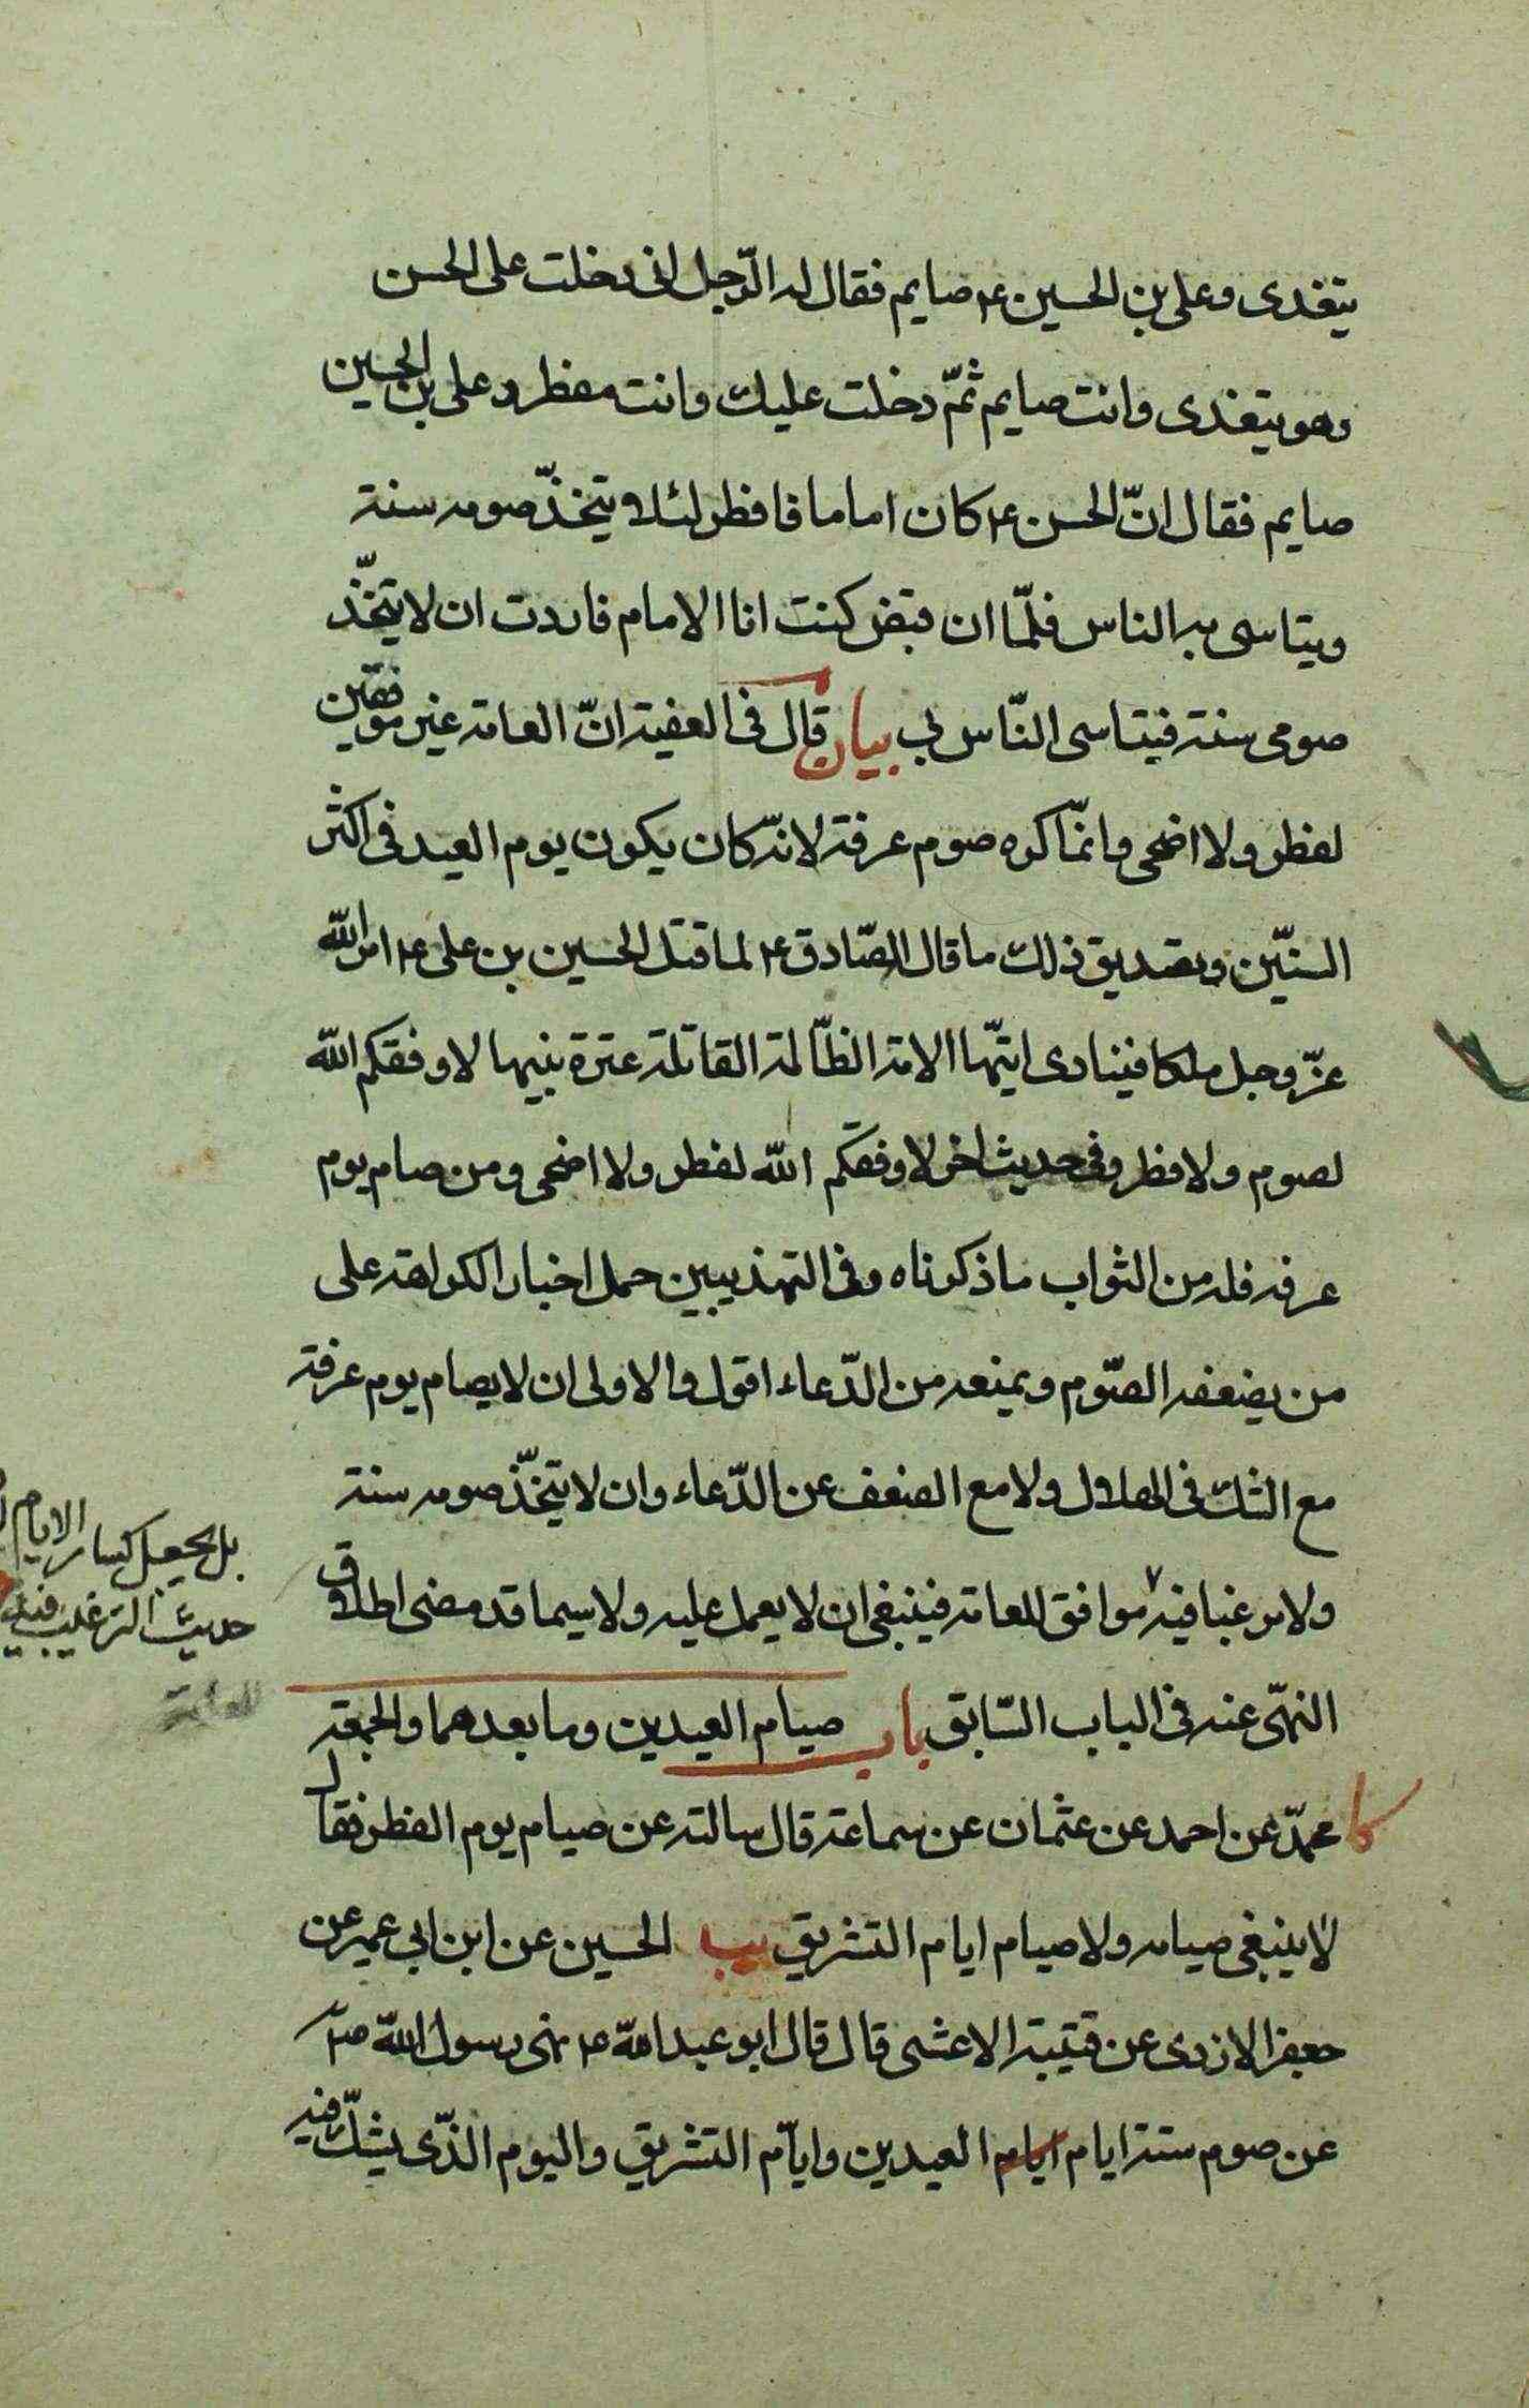 يتغدى وعلى بن الحسين ع صايم فقال له الرّجل انى دخلت على الحسن
وهو يتغدى وانت صايم ثمّ دخلت عليك وانت مفطر وعلى بن الحسين
صايم فقال انّ الحسن ع كان اماما فافطر لئلا يتخذّ صومه سنة
ويتاسى به الناس فلمّا ان قبض كنت انا الامام فاردت ان لا يتخّذ
صومى سنة فيتاسى النّاس بى بيان قال فى الفقيه انّ العامة غير موفقين
لفطر ولا اضحى وانمّا كره صوم عرفة لانّه كان يكون يوم العيد فى اكثر
السنيّن وتصديق ذلك ما قال الصّادق ع لما قتل الحسين بن على ع امر الله
عزّ وجل ملكا فينادى ايتّها الامة الظّالمة القاتلة عترة نبيها لا وفقكم الله
لصوم ولا فطر وفى حديث اخر لا وفقكم الله لفطر ولا اضحى ومن صام يوم
عرفه فله من الثواب ما ذكرناه وفى التهذيبين حمل اخبار الكراهة على
من يضعفه الصّوم ويمنعه من الدّعاء اقول والاولى ان لا يصام يوم عرفة
مع الشك فى الهلال ولا مع الضعف عن الدّعاء وان لا يتخّذ صومه سنة
ولا مرغبا فيه موافق للعامة فينبغى ان لا يعمل عليه ولا سيما قد مضى اطلاق
النهّى عنه فى الباب السّابق باب صيام العيدين وما بعدهما والجمعة
كا محمدّ عن احمد عن عثمان عن سماعة قال سالته عن صيام يوم الفطر فقال
لا ينبغى صيامه ولا صيام ايام التشريق يب الحسين عن ابن ابى عمير عن
جعفر الازدى عن قتيبة الاعشى قال قال ابو عبد الله ع نهى رسول الله ص
عن صوم ستة ايام ايام العيدين وايّام التشريق واليوم الذّى يشكّ فيه
بل يجعل كساير الايام
حديث الترغيب فيه
للعامة